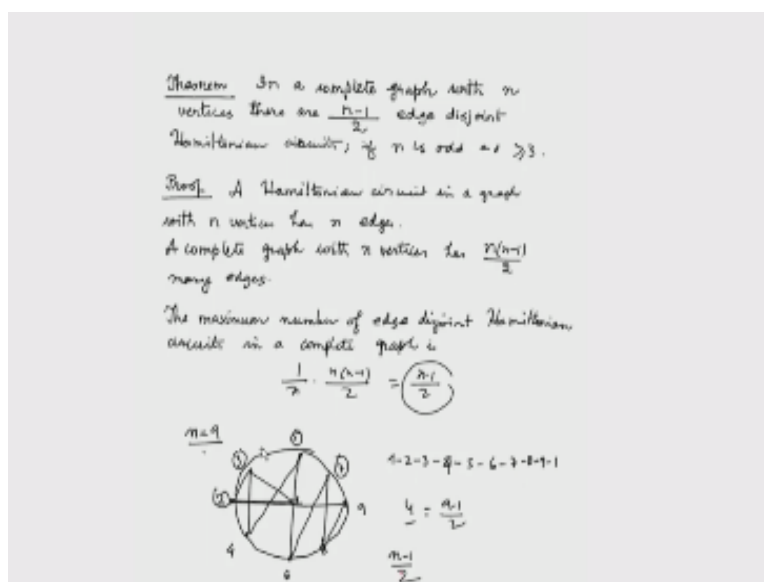 Theorem In a complete graph with n
vertices there are (n-1)/2 edge disjoint
Hamiltonian circuits, if n is odd and ≥3.
Proof. A Hamiltonian circuit in a graph
with n vertices has n edges.
A complete graph with n vertices has n(n-1)/2
many edges.
The maximum number of edge disjoint Hamiltonian
circuits in a complete graph is
1/n · n(n-1)/2 = (n-1)/2
n=9
5
3
7
2
9
4
6
1-2-3-4-5-6-7-8-9-1
4 = (9-1)/2
(n-1)/2